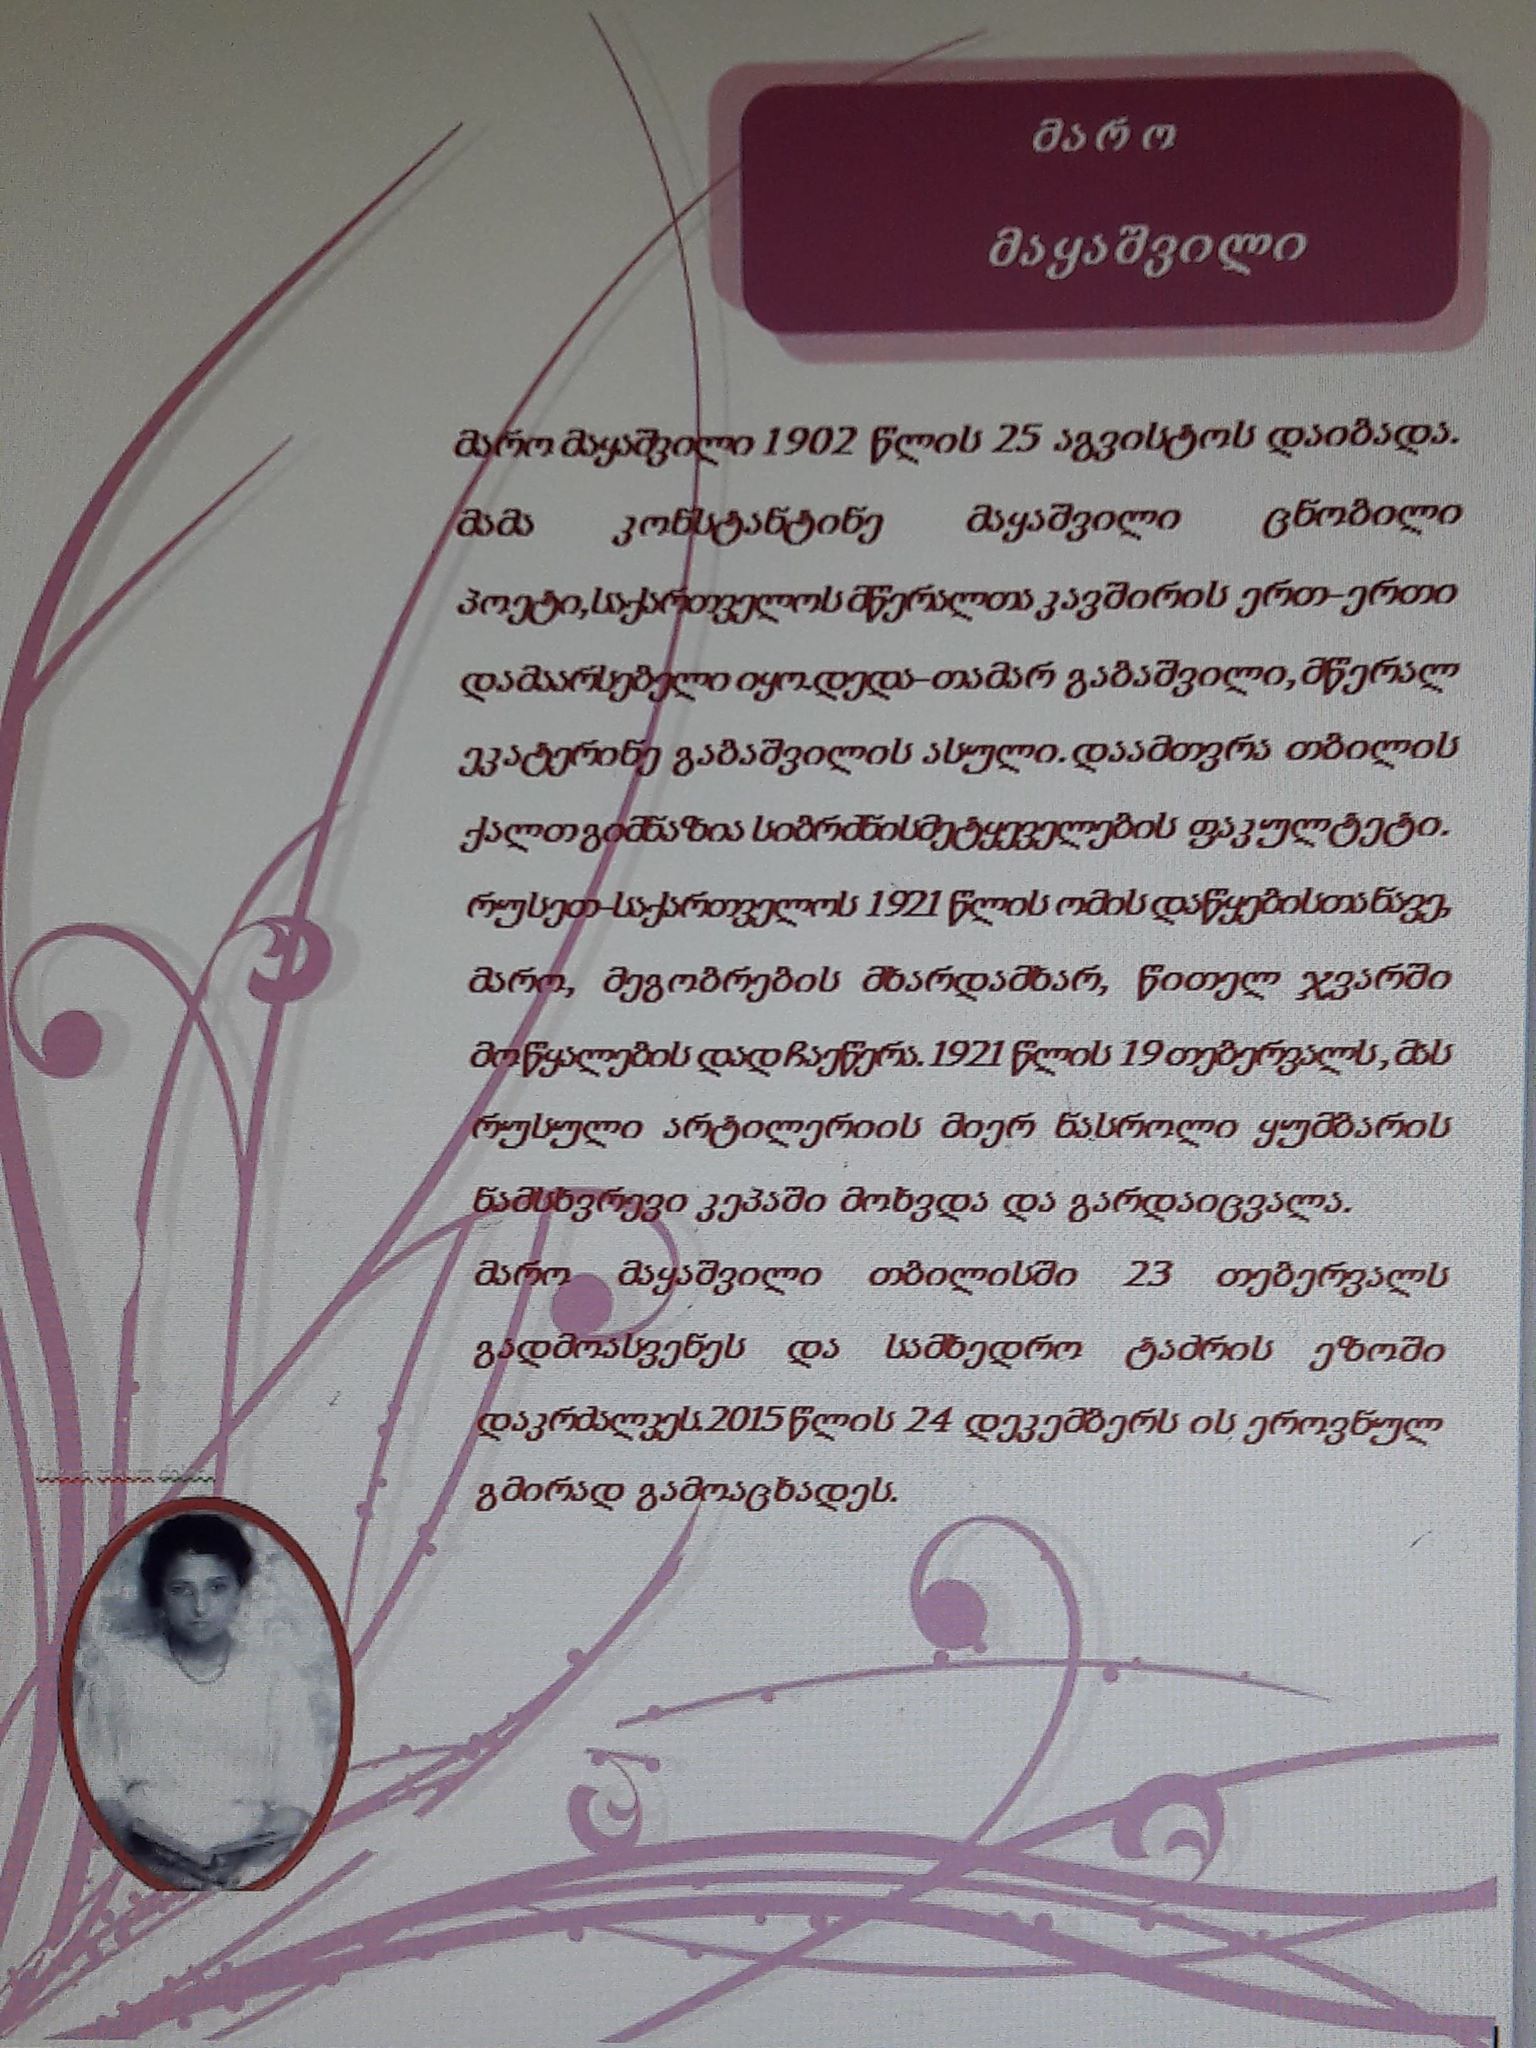 მარო
მაყაშვილი
მარო მაყაშვილი 1902 წლის 25 აგვისტოს დაიბადა.
მამა კონსტანტინე მაყაშვილი ცნობილი
პოეტი,საქართველოს მწერალთა კავშირის ერთ-ერთი
დამაარსებელი იყო.დედა-თამარ გაბაშვილი,მწერალ
ეკატერინე გაბაშვილის ასული.დაამთვრა თბილის
ქალთ გიმნაზია სიბრძნისმეტყველების ფაკულტეტი.
რუსეთ-საქართველოს 1921 წლის ომის დაწყებისთანავე,
მარო, მეგობრების მხარდამხარ, წითელ ჯვარში
მოწყალების დად ჩაეწერა.1921 წლის 19 თებერვალს,მას
რუსული არტილერიის მიერ ნასროლი ყუმბარის
ნამსხვრევი კეპაში მოხვდა და გარდაიცვალა.
მარო მაყაშვილი თბილისში 23 თებერვალს
გადმოასვენეს და სამხედრო ტაძრის ეზოში
დაკრძალეს.2015 წლის 24 დეკემბერს ის ეროვნულ
გმირად გამოაცხადეს.